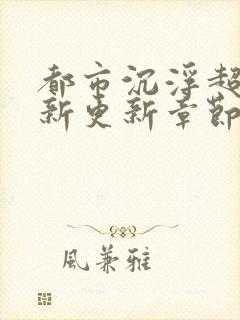 都市沉浮超
新更新章節
風兼雅